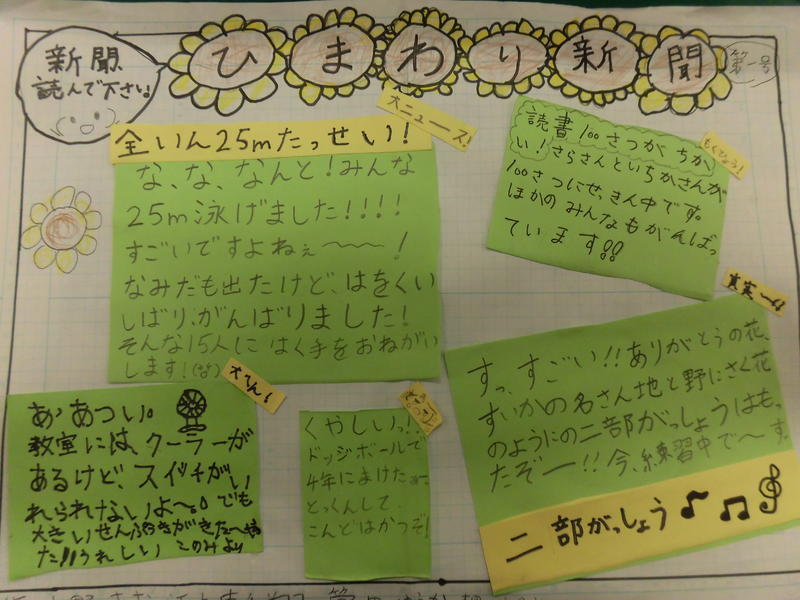 新聞
読んで下さい。
ひまわり新聞
第一号
大ニュース!
全いん25mたっせい!
な、な、なんと!みんな
25m泳げました!!!!
すごいですよねぇ〜〜〜!
なみだも出たけど、はをくい
しばり、がんばりました!
そんな15人にはく手をおねがい
します!
もくひょう!
読書100さつがちか
い!さらさんといちかさんが
100さつにせっきん中です。
ほかのみんなもがんばっ
ています!!
大へん!
あ、あつい。
教室には、クーラーが
あるけど、スイッチがい
れられないよ〜。でも
大きいせんぷうきがきた〜
た!!うれしい このみより
くやしいっ!
ドッジボールで
4年にまけた
とっくんして
こんどはかつぞ!
すっ、すごい!!ありがとうの花、
すいかの名さん地と野にさく花
のようにの二部がっしょうはもっ
たぞー!!今、練習中で〜す。
二部がっしょう